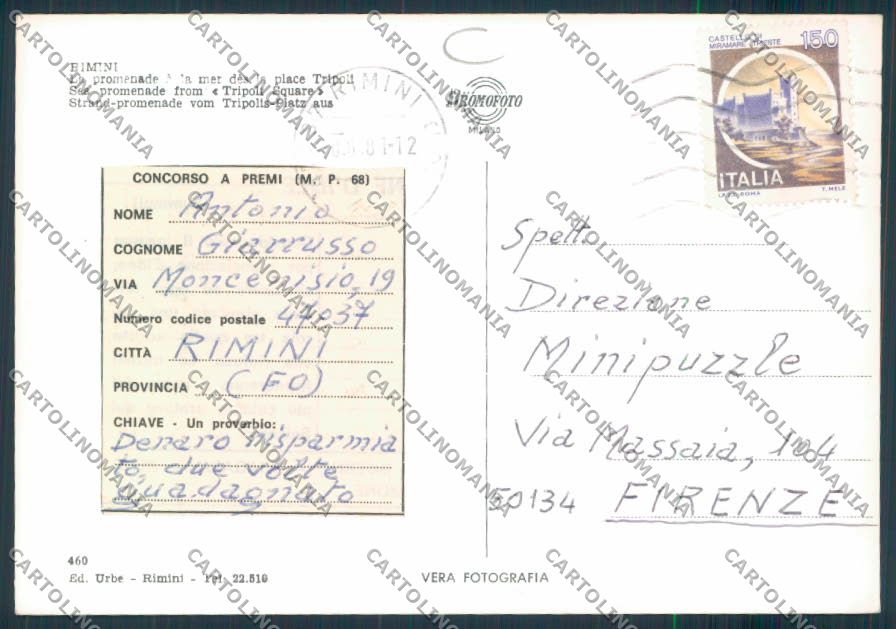 RIMINI
La promenade à la mer dès la place Tripoli
See promenade from « Tripoli Square »
Strand-promenade vom Tripolis-Platz aus
KROMOFOTO
MILANO
RIMINI
CASTELLO DI
MIRAMARE - TRIESTE
150
ITALIA
T. MELE
CONCORSO A PREMI (M. P. 68)
NOME Antonio
COGNOME Giarrusso
VIA Moncenisio, 19
Numero codice postale 47037
CITTÀ RIMINI
PROVINCIA (FO)
CHIAVE - Un proverbio:
Denaro risparmia
to, due volte
guadagnato
Spett.
Direzione
Minipuzzle
Via Massaia, 104
50134 FIRENZE
460
Ed. Urbe - Rimini - Tel. 22.519
VERA FOTOGRAFIA
CARTOLINOMANIA